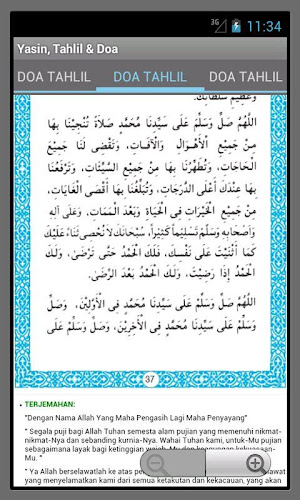 3G 11:34
Yasin, Tahlil & Doa
DOA TAHLIL DOA TAHLIL DOA TAHLIL
وَعَظِيْمِ سُلْطَانِكَ.
اَللّٰهُمَّ صَلِّ وَسَلِّمْ عَلَى سَيِّدِنَا مُحَمَّدٍ صَلاَةً تُنْجِيْنَا بِهَا
مِنْ جَمِيْعِ الْأَهْوَالِ وَالْآفَاتِ، وَتَقْضِى لَنَا جَمِيْعَ
الْحَاجَاتِ، وَتُطَهِّرُنَا بِهَا مِنْ جَمِيْعِ السَّيِّئَاتِ، وَتَرْفَعُنَا
بِهَا عِنْدَكَ أَعْلَى الدَّرَجَاتِ، وَتُبَلِّغُنَا بِهَا أَقْصَى الْغَايَاتِ،
مِنْ جَمِيْعِ الْخَيْرَاتِ فِى الْحَيَاةِ وَبَعْدَ الْمَمَاتِ، وَعَلَى آلِهِ
وَأَصْحَابِهِ وَسَلِّمْ تَسْلِيْمًا كَثِيْرًا، سُبْحَانَكَ لاَ نُحْصِى ثَنَاءً عَلَيْكَ
كَمَا أَثْنَيْتَ عَلَى نَفْسِكَ، فَلَكَ الْحَمْدُ حَتَّى تَرْضَى، وَلَكَ
الْحَمْدُ إِذَا رَضِيْتَ، وَلَكَ الْحَمْدُ بَعْدَ الرِّضَى.
اَللّٰهُمَّ صَلِّ وَسَلِّمْ عَلَى سَيِّدِنَا مُحَمَّدٍ فِى الْأَوَّلِيْنَ، وَصَلِّ
وَسَلِّمْ عَلَى سَيِّدِنَا مُحَمَّدٍ فِى الْآخِرِيْنَ، وَصَلِّ وَسَلِّمْ عَلَى
37
• TERJEMAHAN:
"Dengan Nama Allah Yang Maha Pengasih Lagi Maha Penyayang"
" Segala puji bagi Allah Tuhan semesta alam pujian yang memenuhi nikmat-
nikmat-Nya dan sebanding kurnia-Nya. Wahai Tuhan kami, untuk-Mu pujian
sebagaimana layak bagi ketinggian
Mu. "
" Ya Allah berselawatlah ke atas
yang menyelamatkan kami dari semua ketakutan dan kekacauan, yang akan